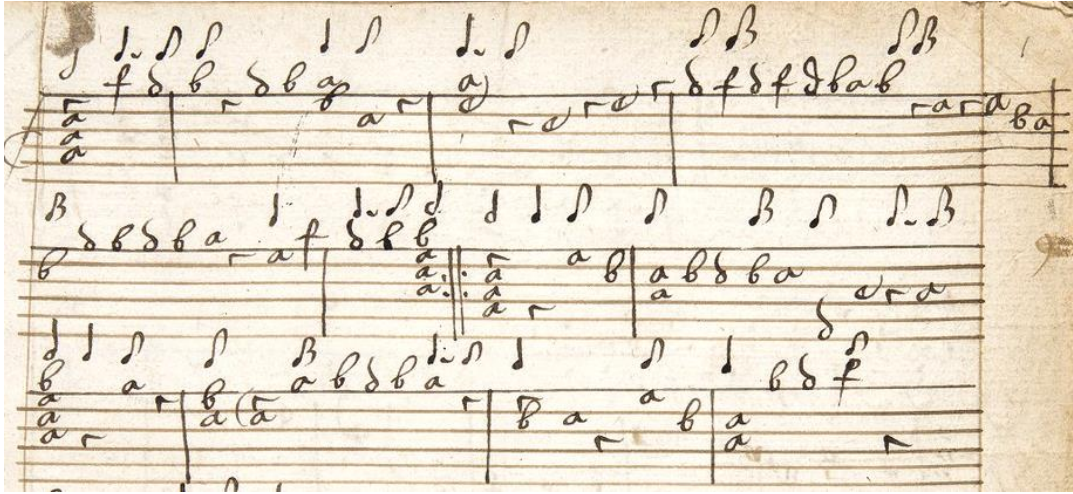 r a a a f d b r d b a b a r a e r e r e r d f d f d b a b r a r a b a
b d b d b a r a f d b b a a a r a a a r a b a a b d b a d e r a
b a a a r a r b a r a a b d b a r r b a r a b a a b d f r